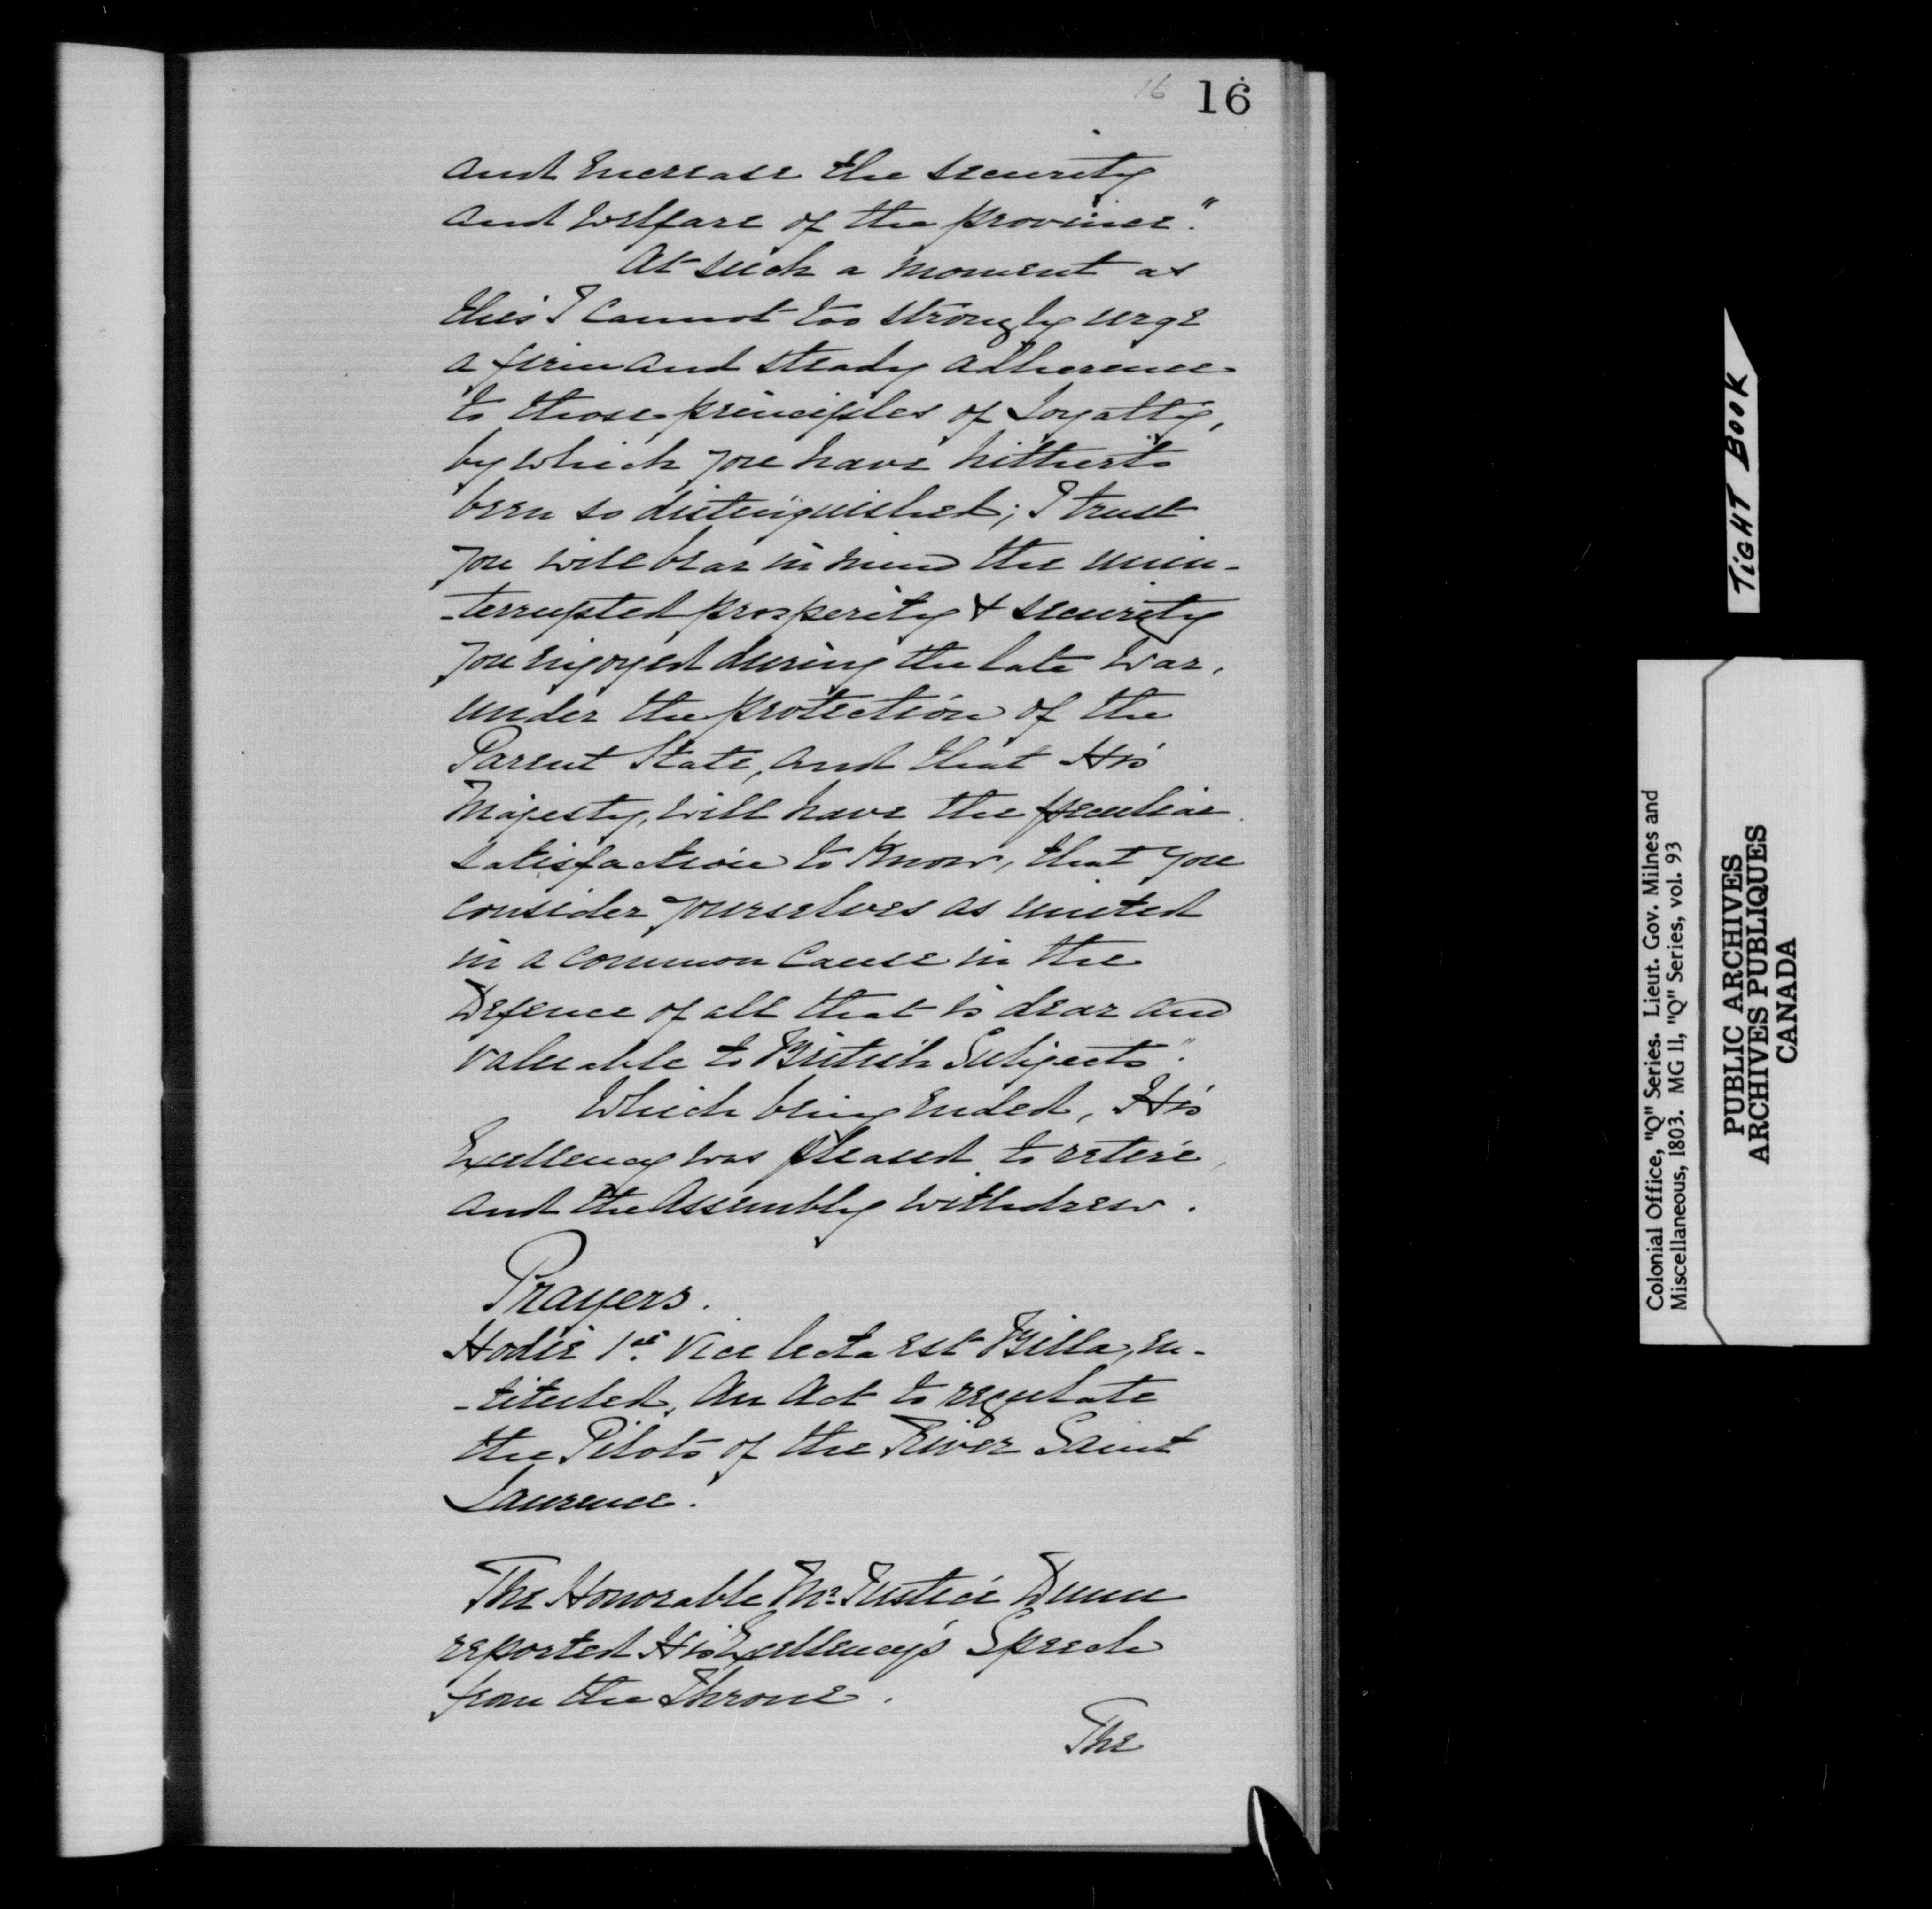 16 16
and increase the security
and welfare of the province."
At such a moment as
this I cannot too strongly urge
a firm and steady adherence
to those principles of Loyalty,
by which you have hitherto
been so distinguished; I trust
you will bear in mind the unin-
-terrupted prosperity & security
you enjoyed during the late War,
under the protection of the
Parent State, and that His
Majesty, will have the peculiar
satisfaction to know, that you
consider yourselves as united
in a common cause in the
Defence of all that is dear and
valuable to British Subjects".
Which being ended, His
Excellency was pleased to retire,
and the Assembly withdrew.
Prayers.
Hodie 1ª Vice lecta est Billa, en-
-tituled, An Act to regulate
the Pilots of the River Saint
Laurence.
The Honorable Mr. Justice Dunn
reported His Excellency's Speech
from the Throne.
The
TIGHT BOOK
Colonial Office, "Q" Series. Lieut. Gov. Milnes and
Miscellaneous, 1803. MG 11, "Q" Series, vol. 93
PUBLIC ARCHIVES
ARCHIVES PUBLIQUES
CANADA